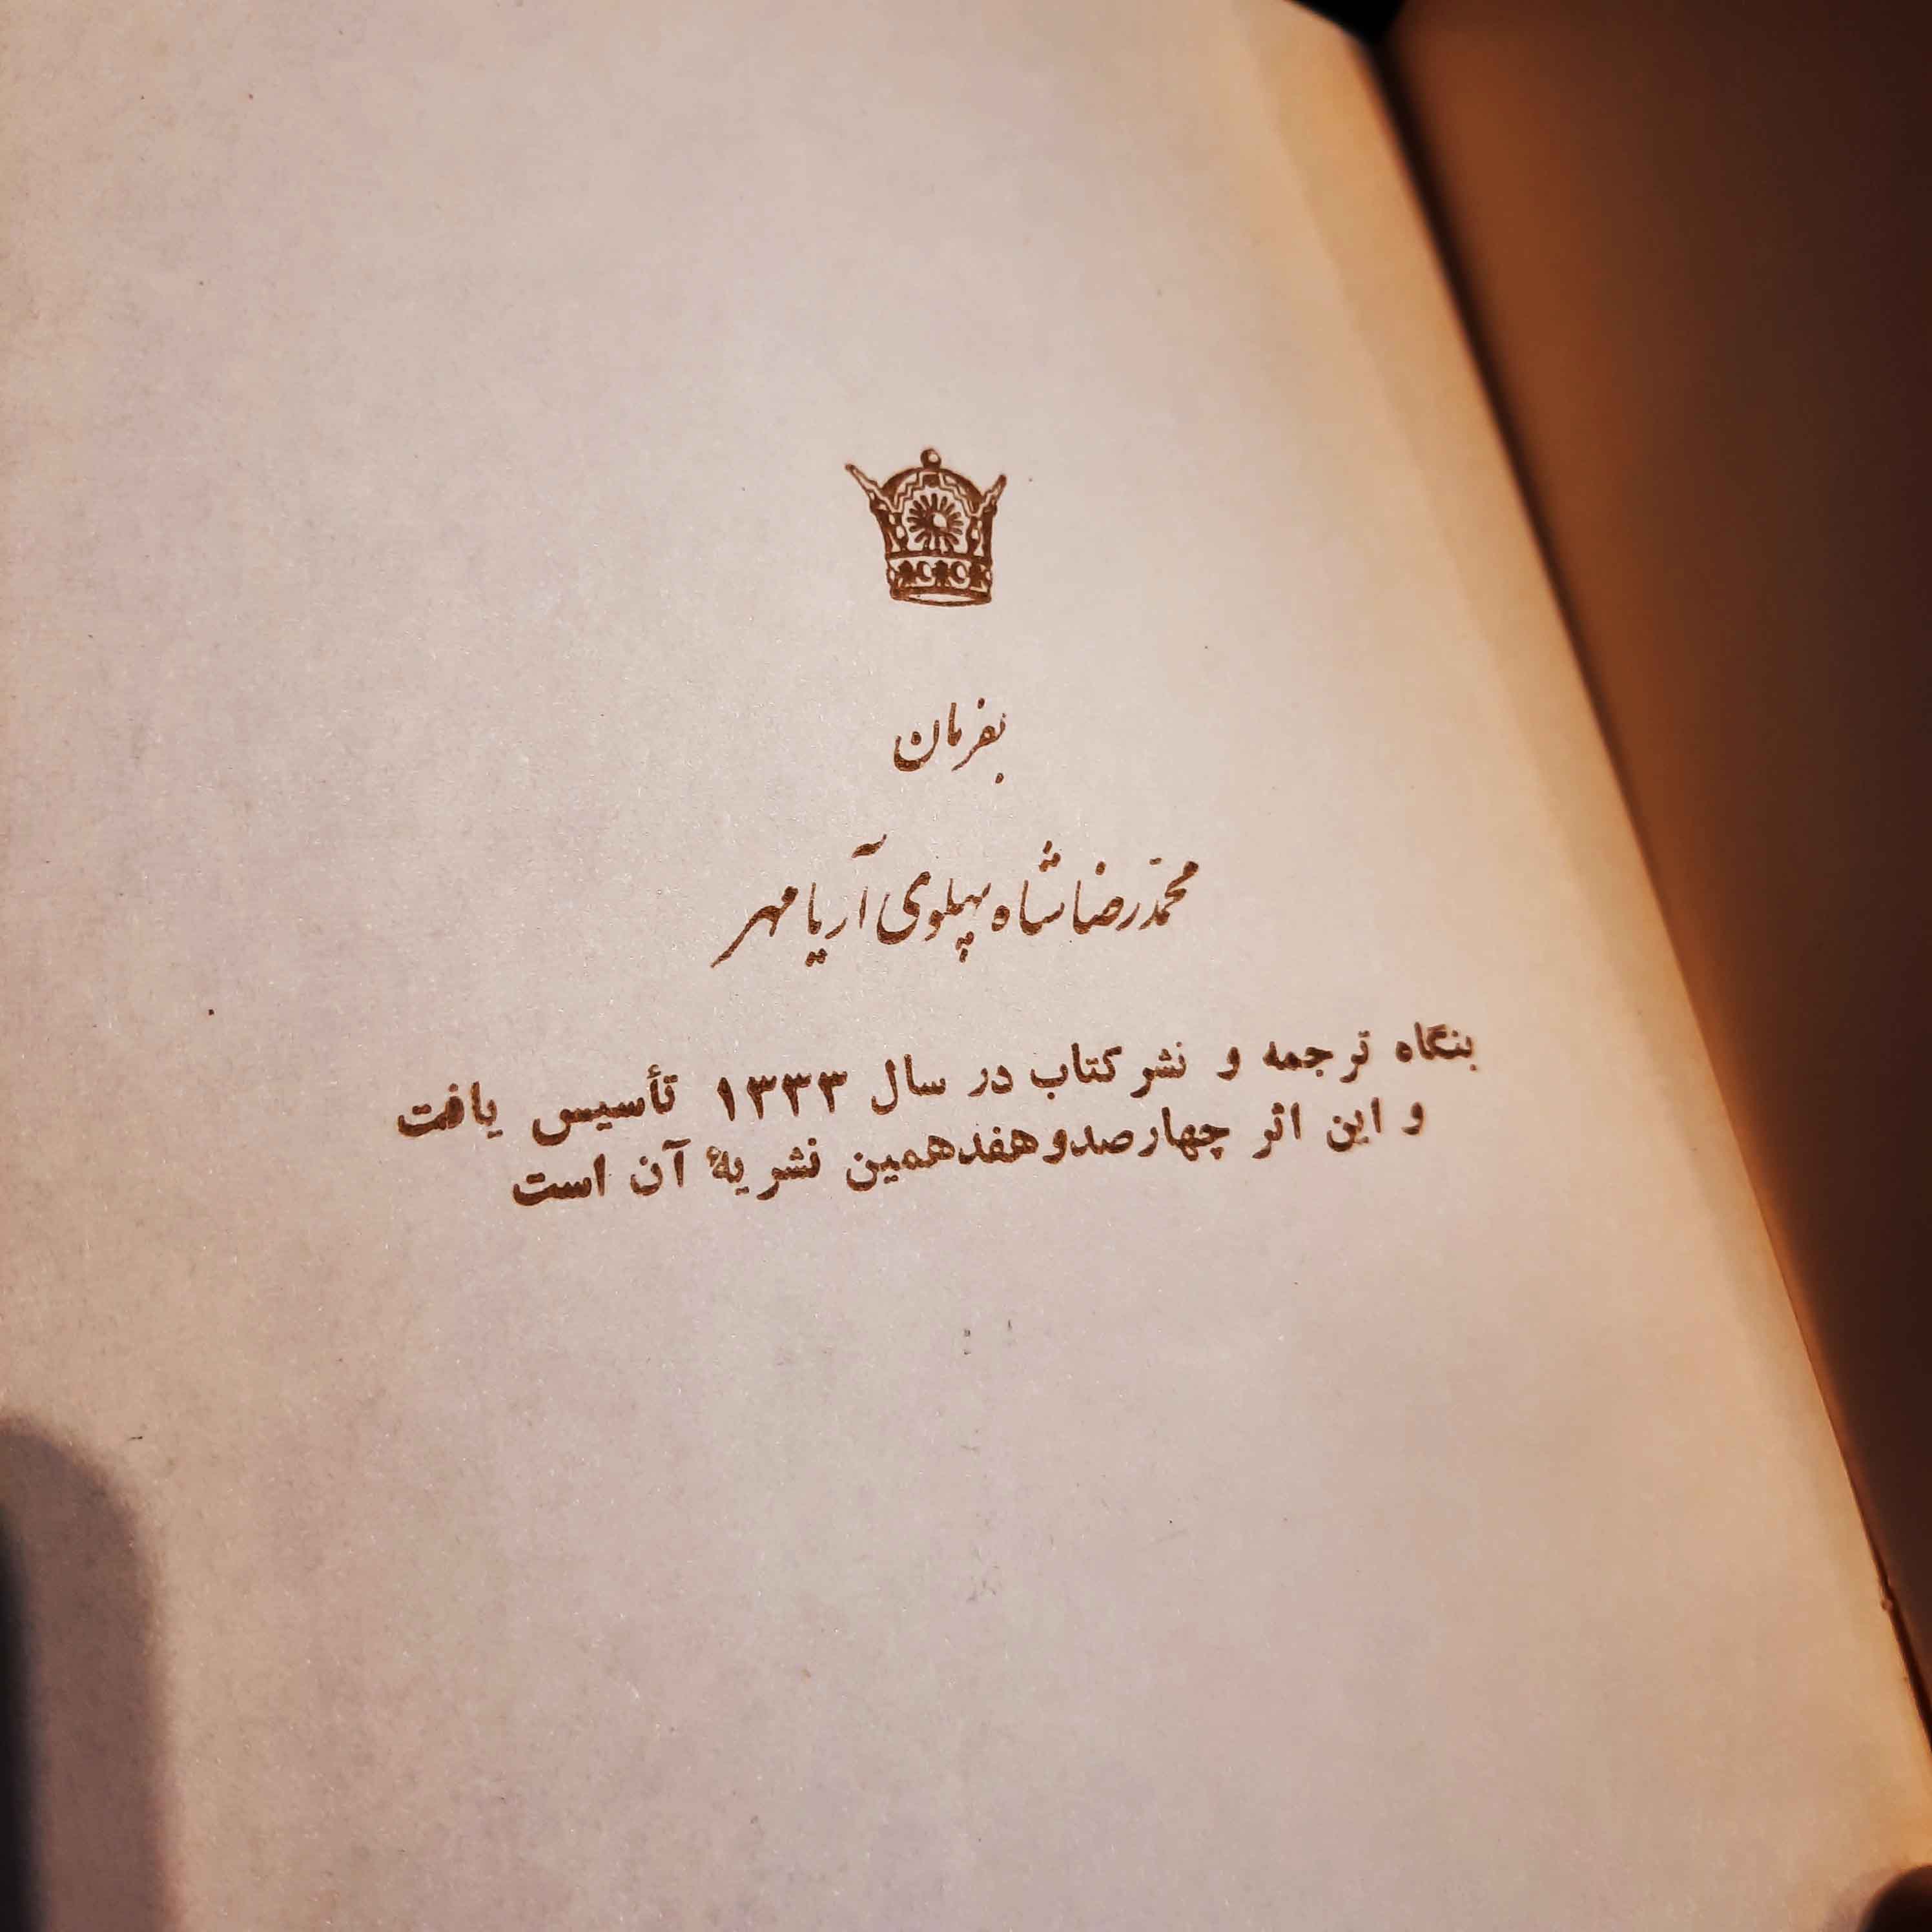 بفرمان
محمّدرضاشاه پهلوی آریامهر
بنگاه ترجمه و نشر کتاب در سال ۱۳۳۳ تأسیس یافت
و این اثر چهارصدوهفدهمین نشریهٔ آن است